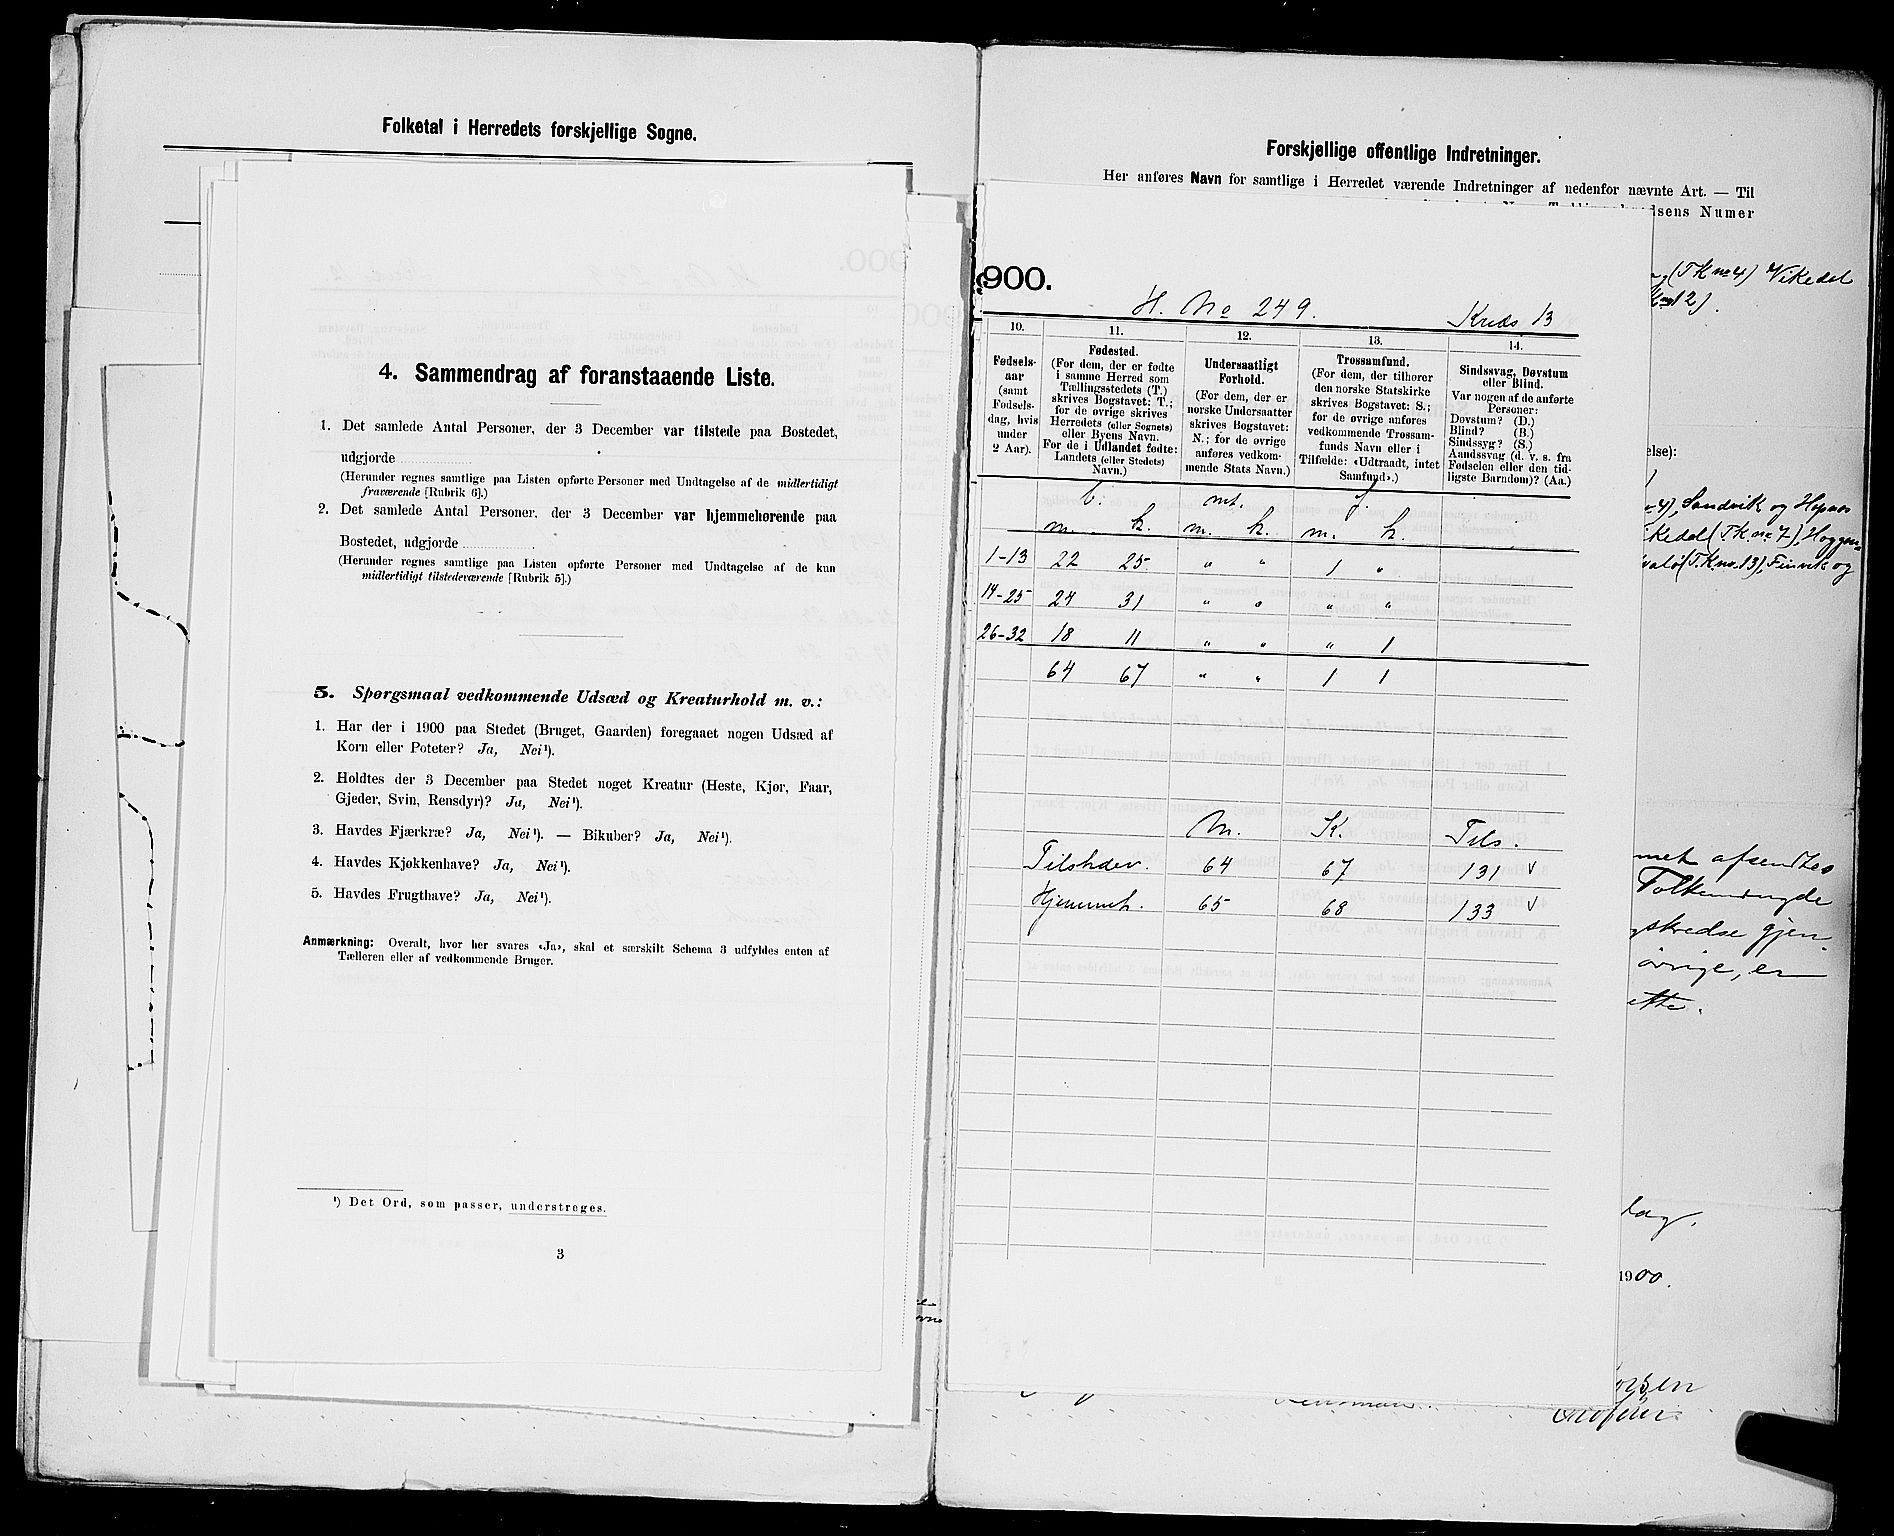 Folketal i Herredets forskjellige Sogne.
4. Sammendrag af foranstaaende Liste.
1. Det samlede Antal Personer, der 3 December var tilstede paa Bostedet,
udgjorde
(Herunder regnes samtlige paa Listen opførte Personer med Undtagelse af de midlertidigt
fraværende [Rubrik 6].)
2. Det samlede Antal Personer, der 3 December var hjemmehørende paa
Bostedet, udgjorde
(Herunder regnes samtlige paa Listen opførte Personer med Undtagelse af de kun
midlertidigt tilstedeværende [Rubrik 5].)
5. Spørgsmaal vedkommende Udsæd og Kreaturhold m. v.:
1. Har der i 1900 paa Stedet (Bruget, Gaarden) foregaaet nogen Udsæd af
Korn eller Poteter? Ja, Nei¹).
2. Holdtes der 3 December paa Stedet noget Kreatur (Heste, Kjør, Faar,
Gjeder, Svin, Rensdyr)? Ja, Nei¹).
3. Havdes Fjærkræ? Ja, Nei¹). — Bikuber? Ja, Nei¹).
4. Havdes Kjøkkenhave? Ja, Nei¹).
5. Havdes Frugthave? Ja, Nei¹).
Anmærkning: Overalt, hvor her svares «Ja», skal et særskilt Schema 3 udfyldes enten af
Tælleren eller af vedkommende Bruger.
¹) Det Ord, som passer, understreges.
3
Forskjellige offentlige Indretninger.
Her anføres Navn for samtlige i Herredet værende Indretninger af nedenfor nævnte Art. — Til
Numer
(TK no 4) Vikedal
900.
H. No 249. Kreds 13
10. 11. 12. 13. 14.
Fødselsaar
(samt
Fødselsdag, hvis
under
2 Aar).
Fødested.
(For dem, der er fødte
i samme Herred som
Tællingsstedets (T.)
skrives Bogstavet: T.;
for de øvrige skrives
Herredets (eller Sognets)
eller Byens Navn.
For de i Udlandet fødte:
Landets (eller Stedets)
Navn.)
Undersaatligt
Forhold.
(For dem, der er
norske Undersaatter
skrives Bogstavet:
N.; for de øvrige
anføres vedkommende Stats Navn.)
Trossamfund.
(For dem, der tilhører
den norske Statskirke
skrives Bogstavet: S.;
for de øvrige anføres
vedkommende Trossamfunds Navn eller i
Tilfælde: «Udtraadt, intet
Samfund».)
Sindssvag, Døvstum
eller Blind.
Var nogen af de anførte
Personer:
Døvstum? (D.)
Blind? (B.)
Sindssyg? (S.)
Aandssvag (d. v. s. fra
Fødselen eller den tidligste Barndom)? (Aa.)
b. mt. f.
m. k. m. k. m. k.
1-13 22 25 " " 1 "
14-25 24 31 " " " "
26-32 18 11 " " " 1
64 67 " " 1 1
M. K. Tils.
Tilstedev. 64 67 131 √
Hjemmeh. 65 68 133 √
Sandvik og Hopnæs
(T.K. no 7), Hoggen-
(T.K. no. 13), Finvik og
afsendtes
øvrige, er
1900.